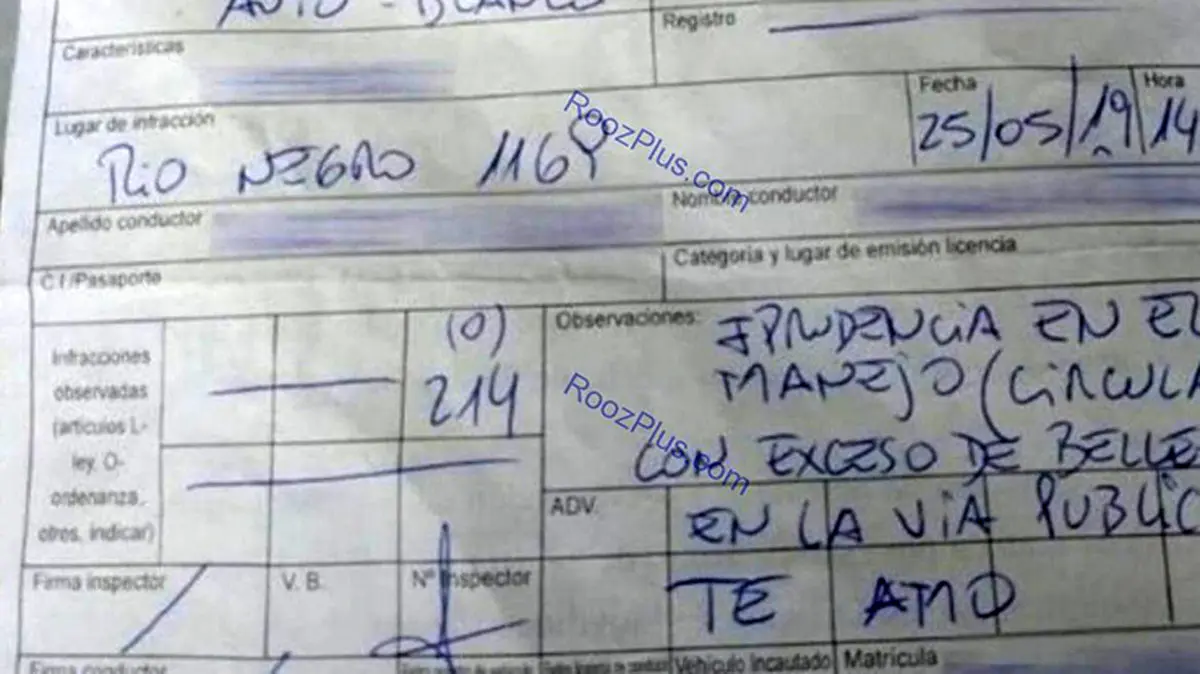 AUTO - BLANCO
Registro
Características
Fecha
Hora
Lugar de infracción
25/05/19
14
RIO NEGRO 1164
RoozPlus.com
Apellido conductor
Nombre conductor
C.I/Pasaporte
Categoría y lugar de emisión licencia
Infracciones
observadas
(artículos L-
ley, O-
ordenanza,
otros, indicar)
(O)
214
Observaciones:
IPRUDENCIA EN EL
MANEJO (CIRCULA
CON EXCESO DE BELLE
RoozPlus.com
ADV.
EN LA VIA PUBLIC
TE AMO
Firma inspector
V. B.
Nº Inspector
Firma conductor
Vehículo incautado
Matrícula